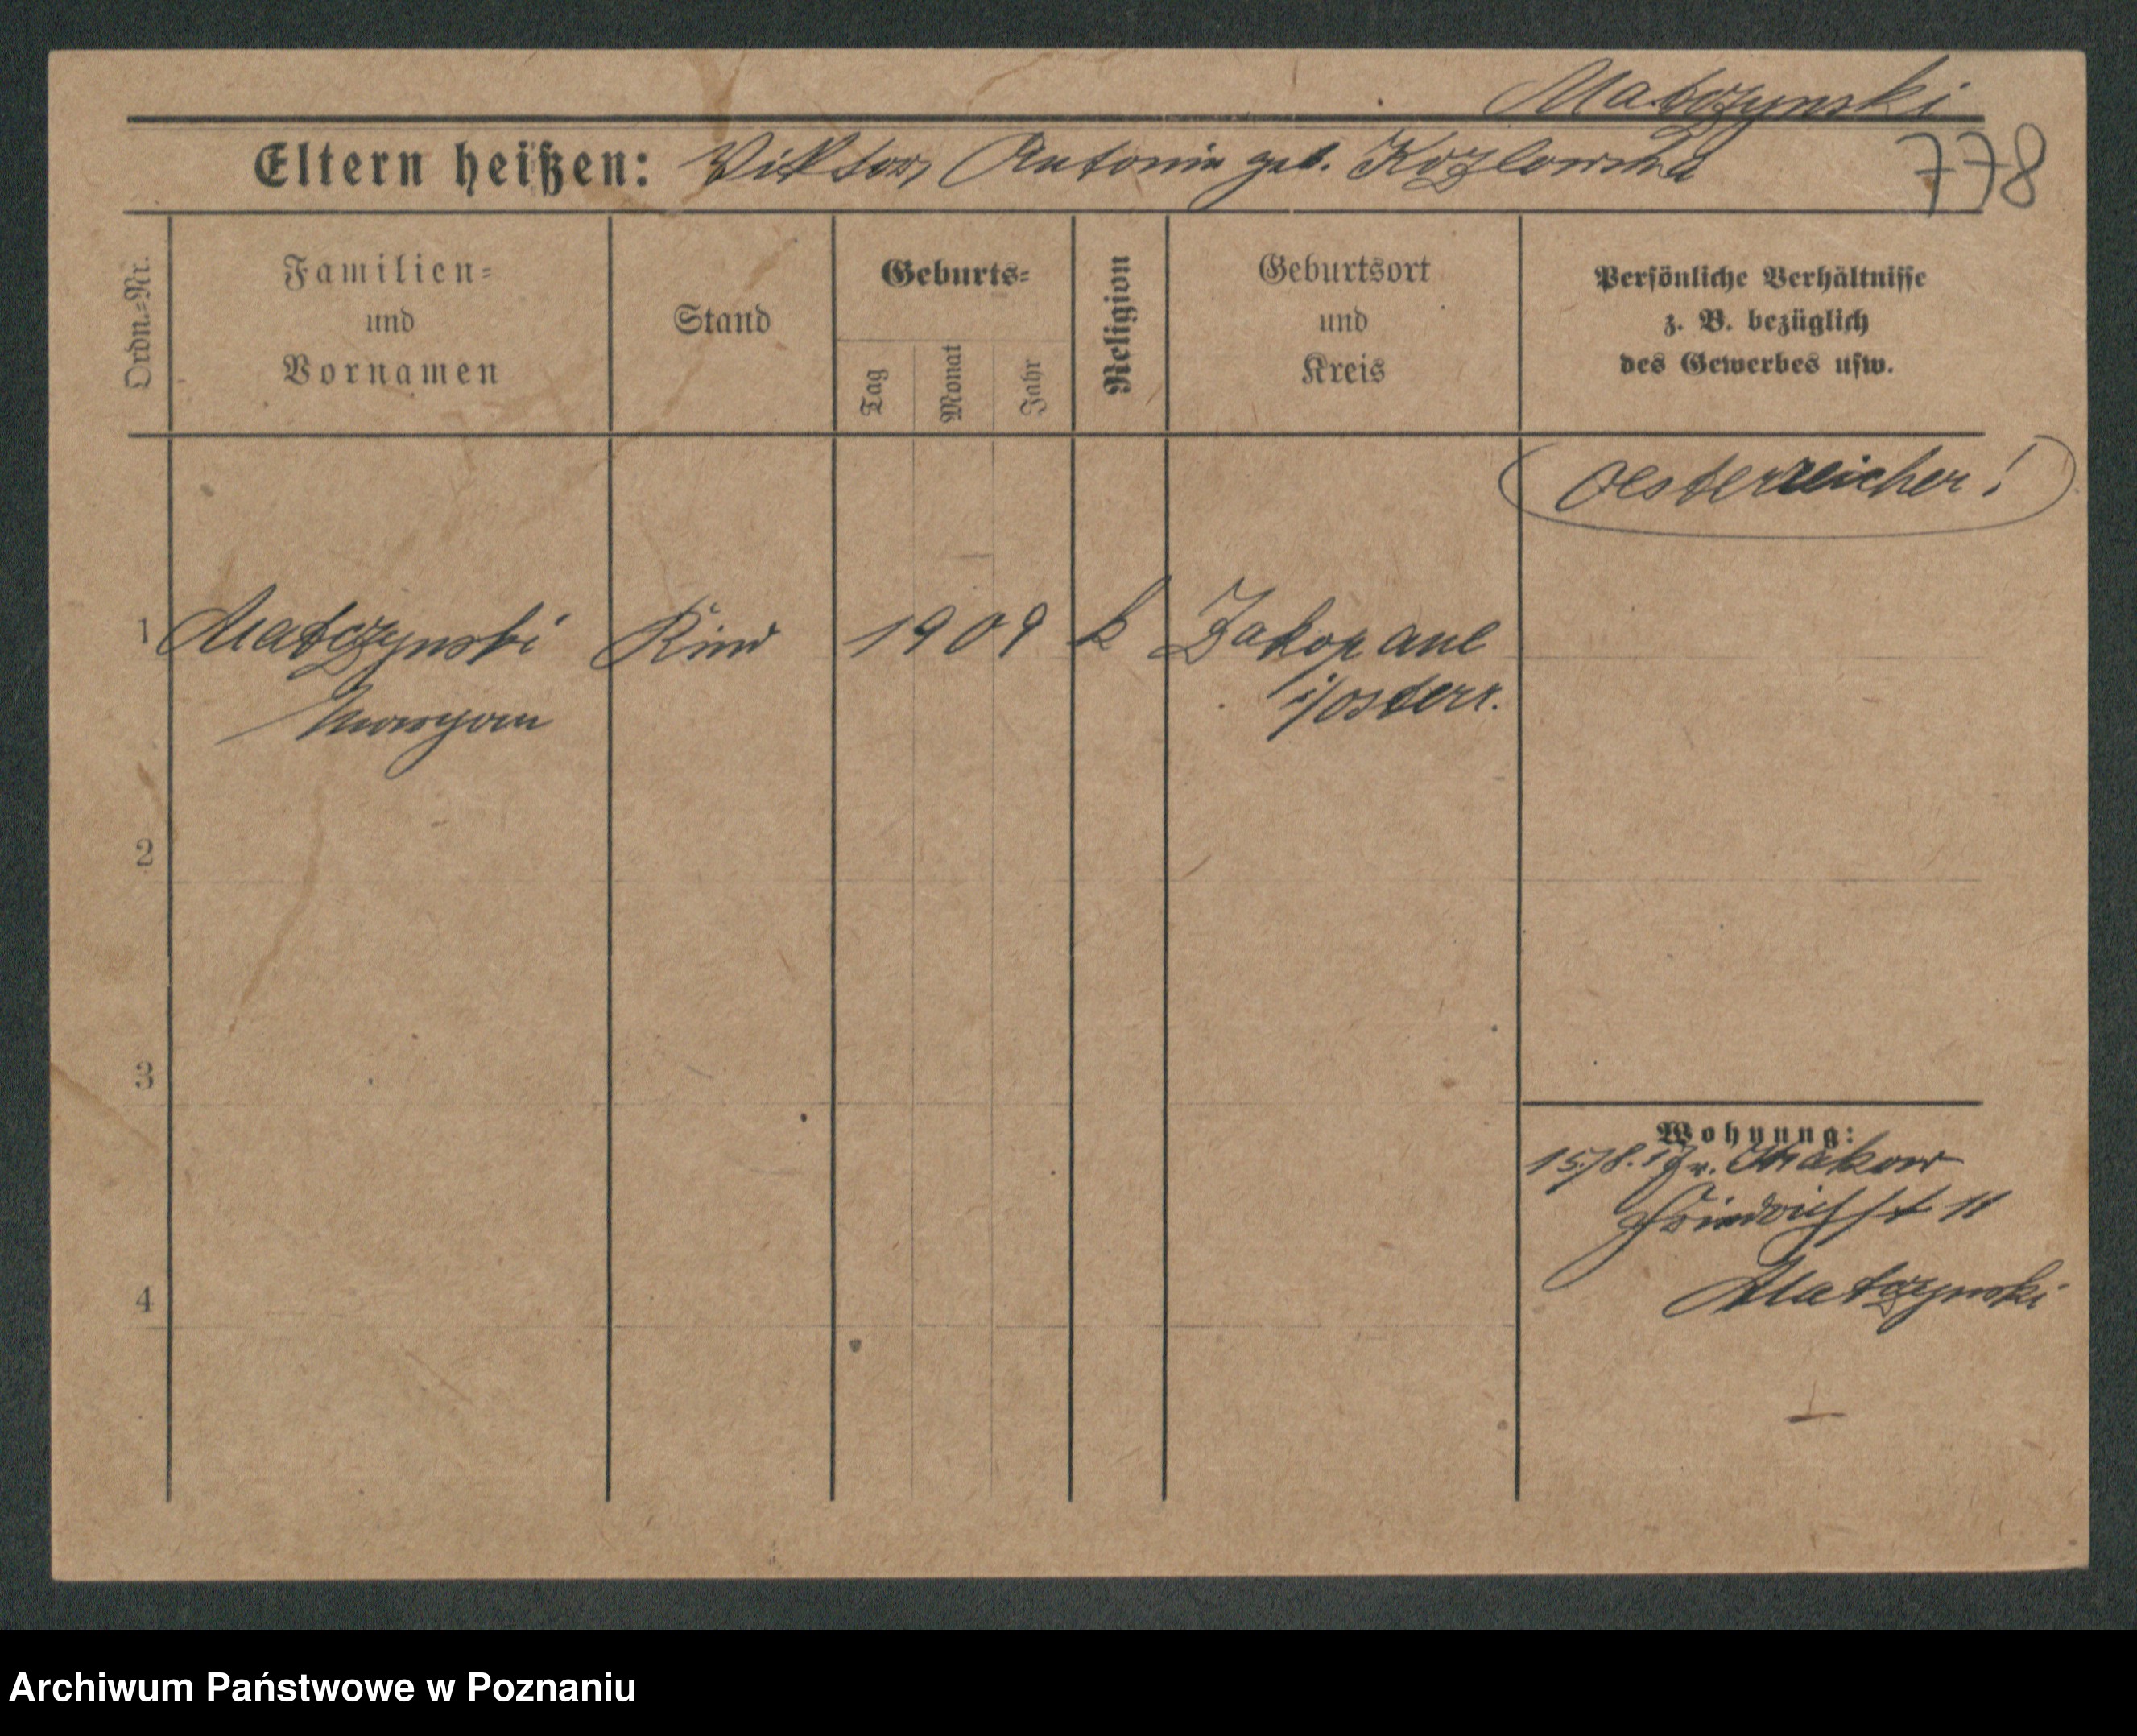 Matczynski
Eltern heißen: Viktor, Antonin geb. Kozlowska
778
Ordn.=Nr.
Familien=
und
Vornamen
Stand
Geburts=
Tag
Monat
Jahr
Religion
Geburtsort
und
Kreis
Persönliche Verhältnisse
z. B. bezüglich
des Gewerbes usw.
Oesterreicher!
1 Matczynski Kind 1909 k Zakopane
i/Osterr.
2
3
4
Wohnung:
15/8. Krakow
Friedrichst 11
Matczynski
Archiwum Państwowe w Poznaniu